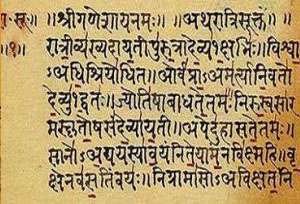 ॥श्रीगणेशायनमः॥ ॥अथरात्रिसूक्तं॥
रात्रीव्यख्यदायतीपुरुत्रादेव्य१क्षभिः॥विश्वा
ऽअधिश्रियोधित॥ओर्वप्राऽअमर्त्यानिवतो
देव्यु१द्वतः॥ज्योतिषाबाधतेतमः॥निरुस्वसार
मस्कृतोषसंदेव्यायती॥अपेदुहासतेतमः॥
सानोऽअद्ययस्यावयंनितेयामन्नविक्ष्महि॥वृ
क्षेनवसतिंवयः॥निग्रामासोऽअविक्षतनि